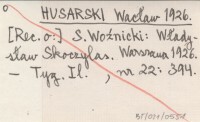 HUSARSKI Wacław 1926.
[Rec. o:] S. Woźnicki: Włady-
sław Skoczylas. Warszawa 1926.
– Tyg. Il. , nr 22: 394.